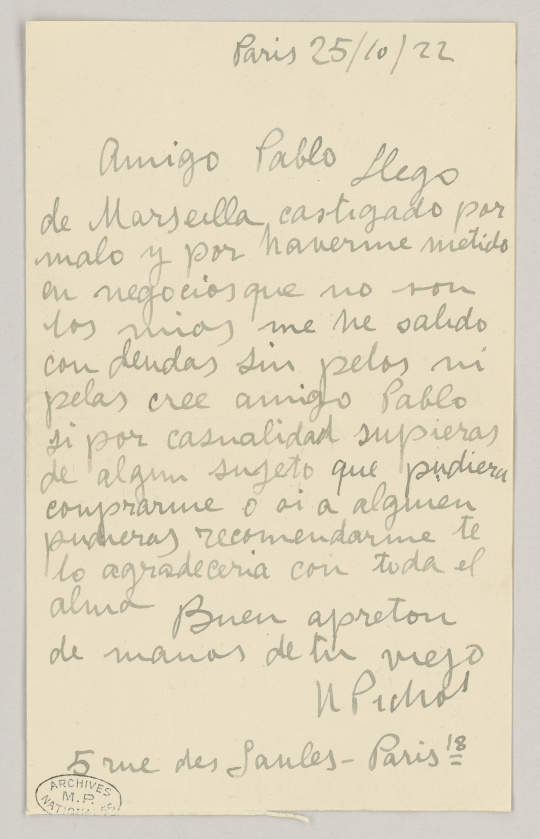 Paris 25/10/22
Amigo Pablo Llego
de Marseilla castigado por
malo y por haverme metido
en negocios que no son
los mios me he salido
con deudas sin pelos ni
pelas cree amigo Pablo
si por casualidad supieras
de algun sugeto que pudiera
comprarme o si a alguien
pudieras recomendarme te
lo agradeceria con toda el
alma Buen apreton
de manos de tu viejo
R Pichot
5 rue des Saules - Paris 18
ARCHIVES
M.P.
NATIONALES